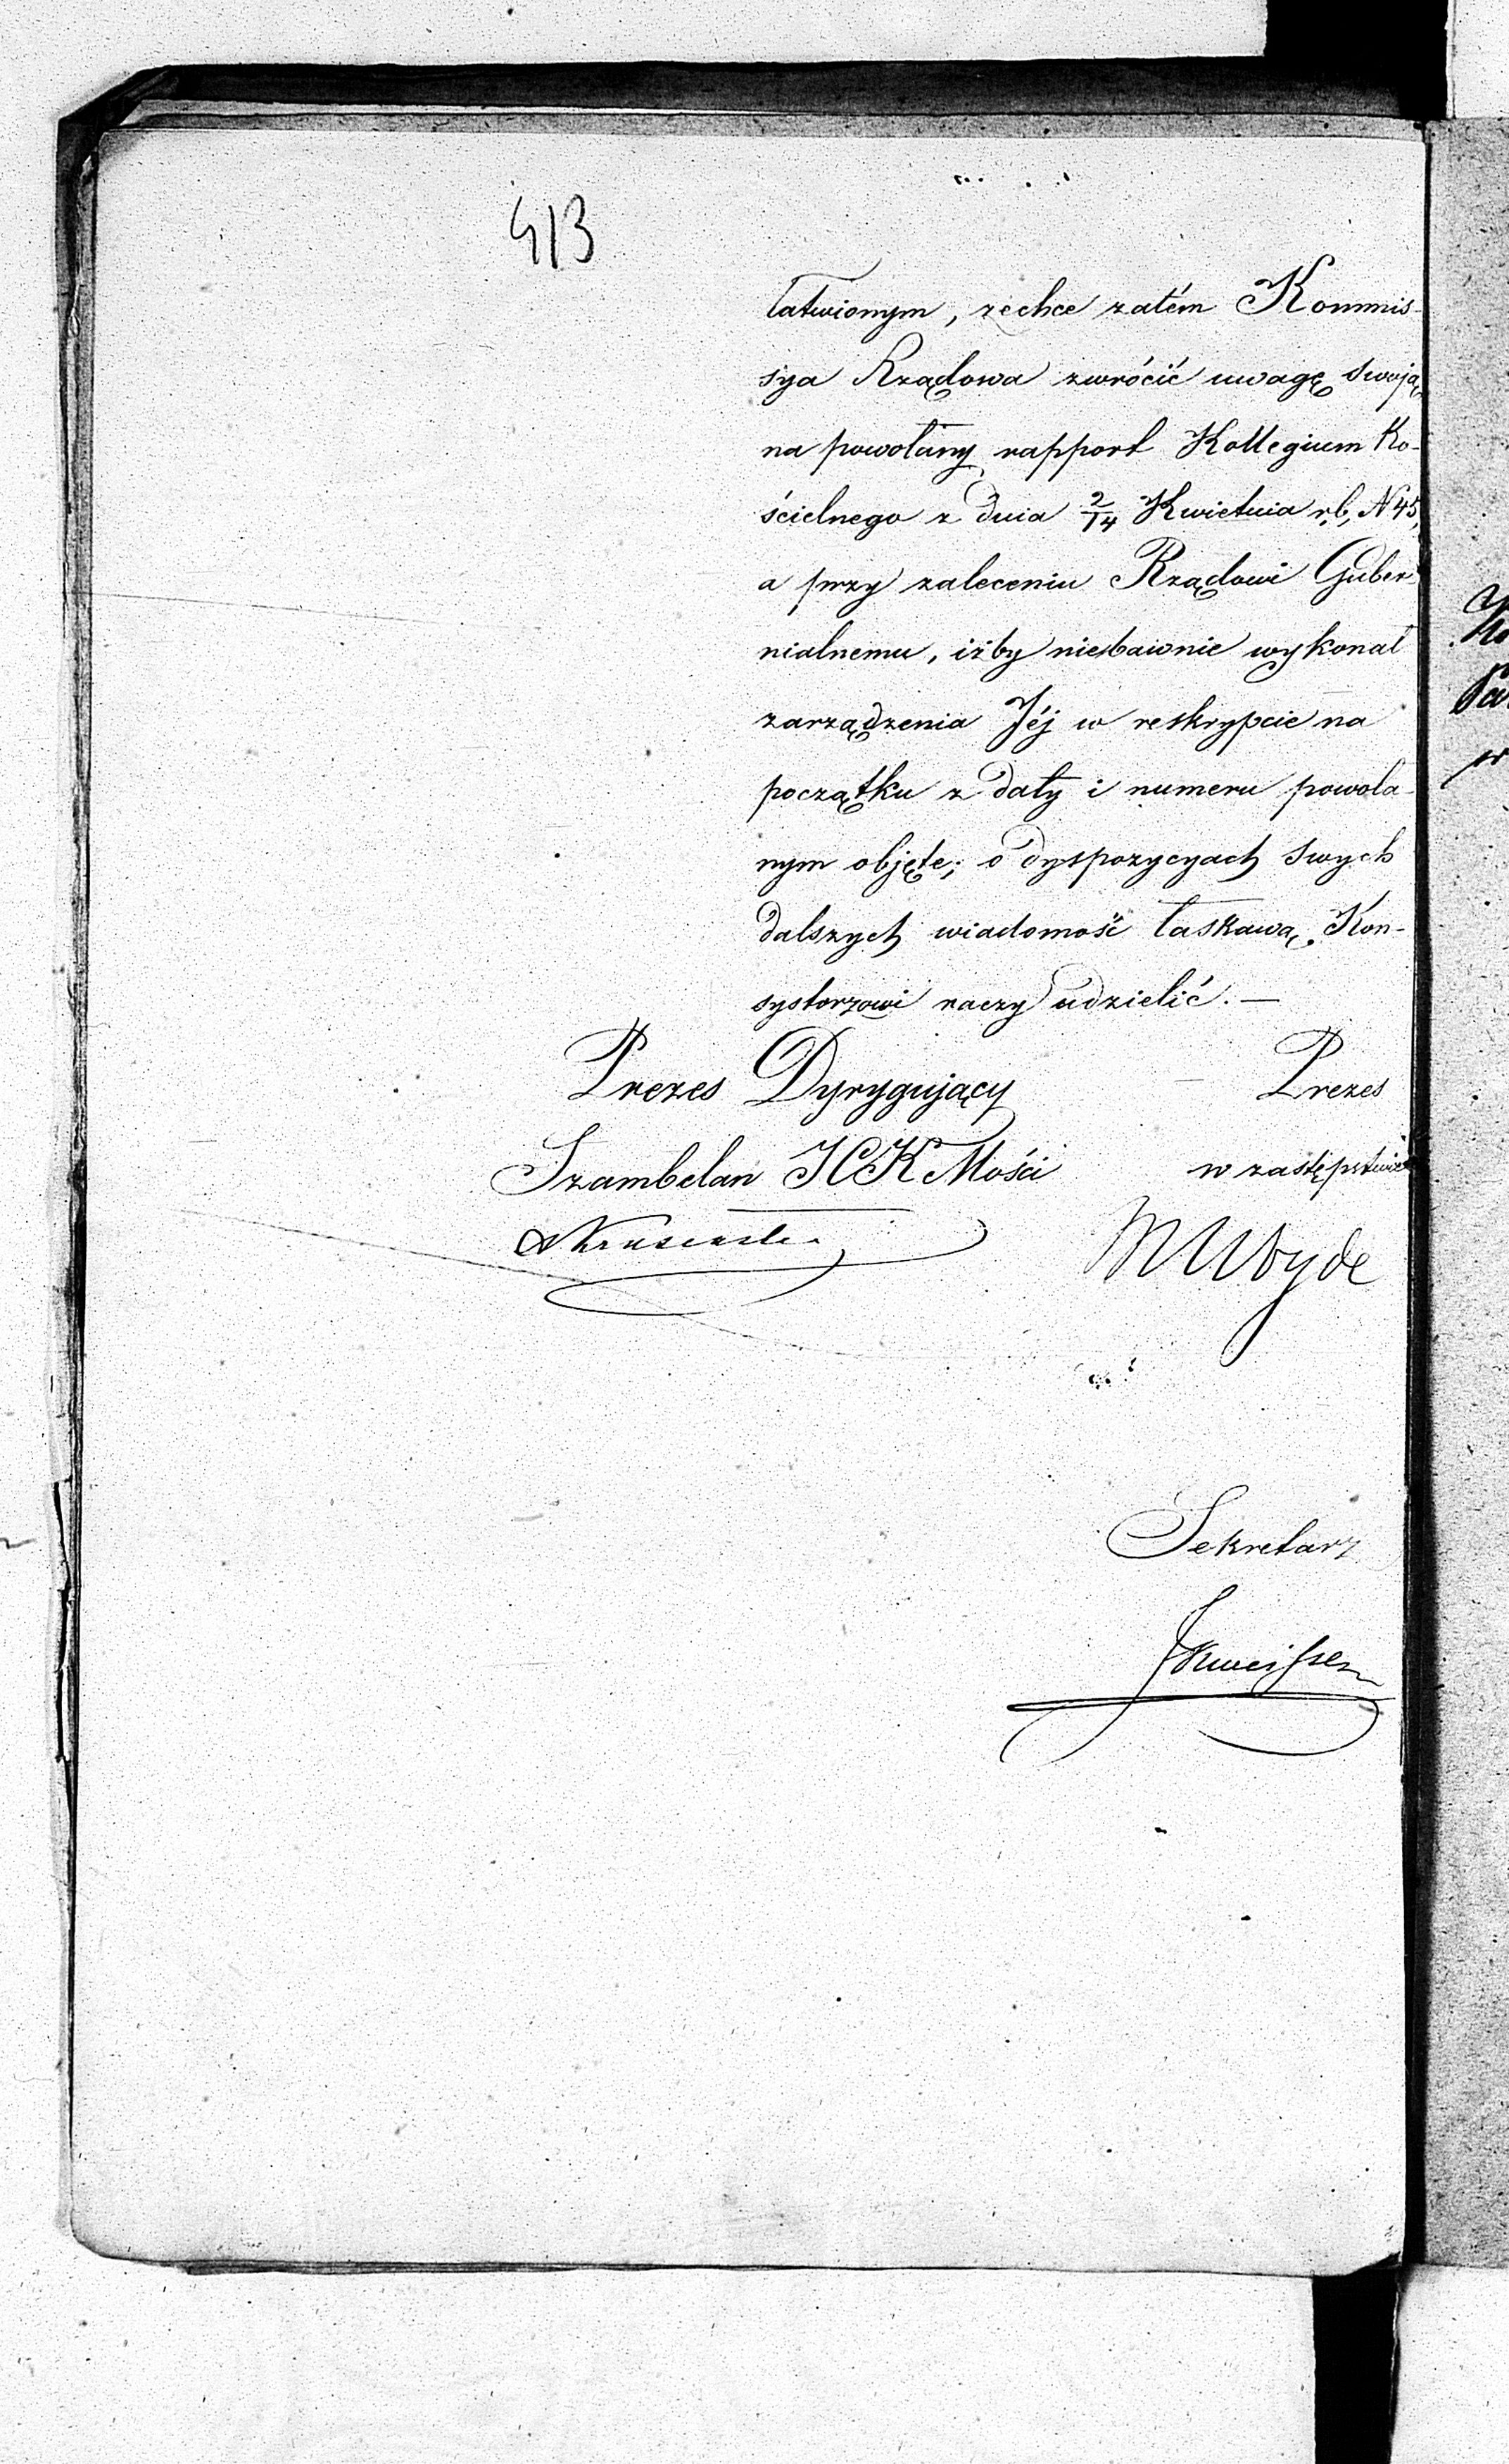 413
łatwionym, zechce zatém Kommis-
sya Rządowa zwrócić uwagę swoją
na powołany rapport Kollegium Ko-
ścielnego z dnia 2/14 Kwietnia r.b. N 45,
a przy zaleceniu Rządowi Guber-
nialnemu, iżby niebawnie wykonał
zarządzenia Jéj w reskrypcie na
początku z daty i numeru powoła-
nym objęte; o dyspozycyach swych
dalszych wiadomość łaskawą Kon-
systorzowi raczy udzielić. —
Prezes Dyrygujący Prezes
Szambelan JCK Mości w zastępstwie
Sekretarz